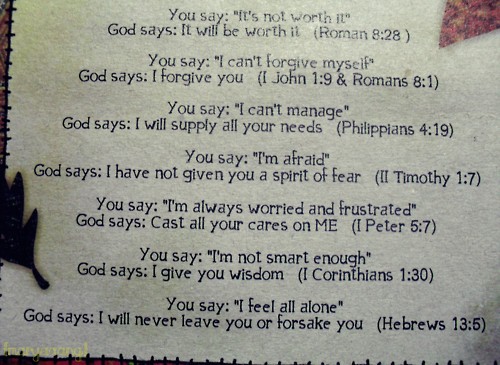 You say: "It's not worth it"
God says: It will be worth it (Roman 8:28 )
You say: "I can't forgive myself"
God says: I forgive you (I John 1:9 & Romans 8:1)
You say: "I can't manage"
God says: I will supply all your needs (Philippians 4:19)
You say: "I'm afraid"
God says: I have not given you a spirit of fear (II Timothy 1:7)
You say: "I'm always worried and frustrated"
God says: Cast all your cares on ME (I Peter 5:7)
You say: "I'm not smart enough"
God says: I give you wisdom (I Corinthians 1:30)
You say: "I feel all alone"
God says: I will never leave you or forsake you (Hebrews 13:5)